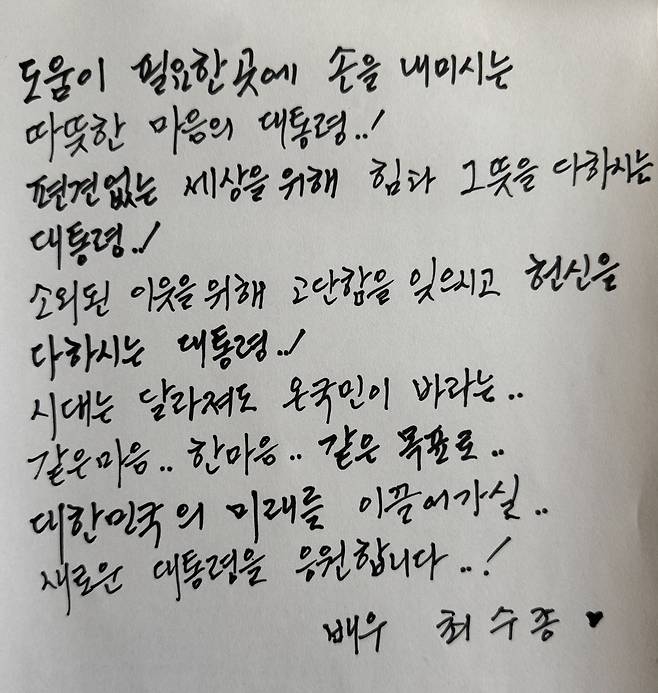 도움이 필요한 곳에 손을 내미시는
따뜻한 마음의 대통령..!
편견없는 세상을 위해 힘과 그 뜻을 다하시는
대통령..!
소외된 이웃을 위해 고단함을 잊으시고 헌신을
다하시는 대통령..!
시대는 달라져도 온국민이 바라는..
같은마음.. 한마음.. 같은 목표로..
대한민국의 미래를 이끌어가실..
새로운 대통령을 응원합니다..!
배우 최수종 ♥